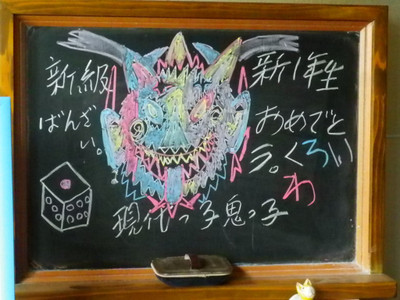 新級
ばんざ
い。
新1年生
おめでと
う。くろい
わ
現代っ子鬼っ子